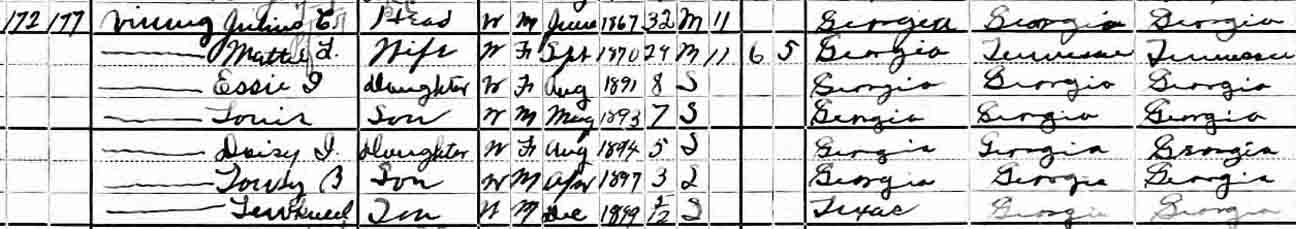 172 177 Vining Julius C. Head W M June 1867 32 M 11 Georgia Georgia Georgia
Mattie L. Wife W F Sept 1870 29 M 11 6 5 Georgia Tennessee Tennessee
Essie I Daughter W F Aug 1891 8 S Georgia Georgia Georgia
Louis Son W M May 1893 7 S Georgia Georgia Georgia
Daisy I. Daughter W F Aug 1894 5 S Georgia Georgia Georgia
B Son W M Apr 1897 3 S Georgia Georgia Georgia
Son W M Dec 1899 /12 S Texas Georgia Georgia